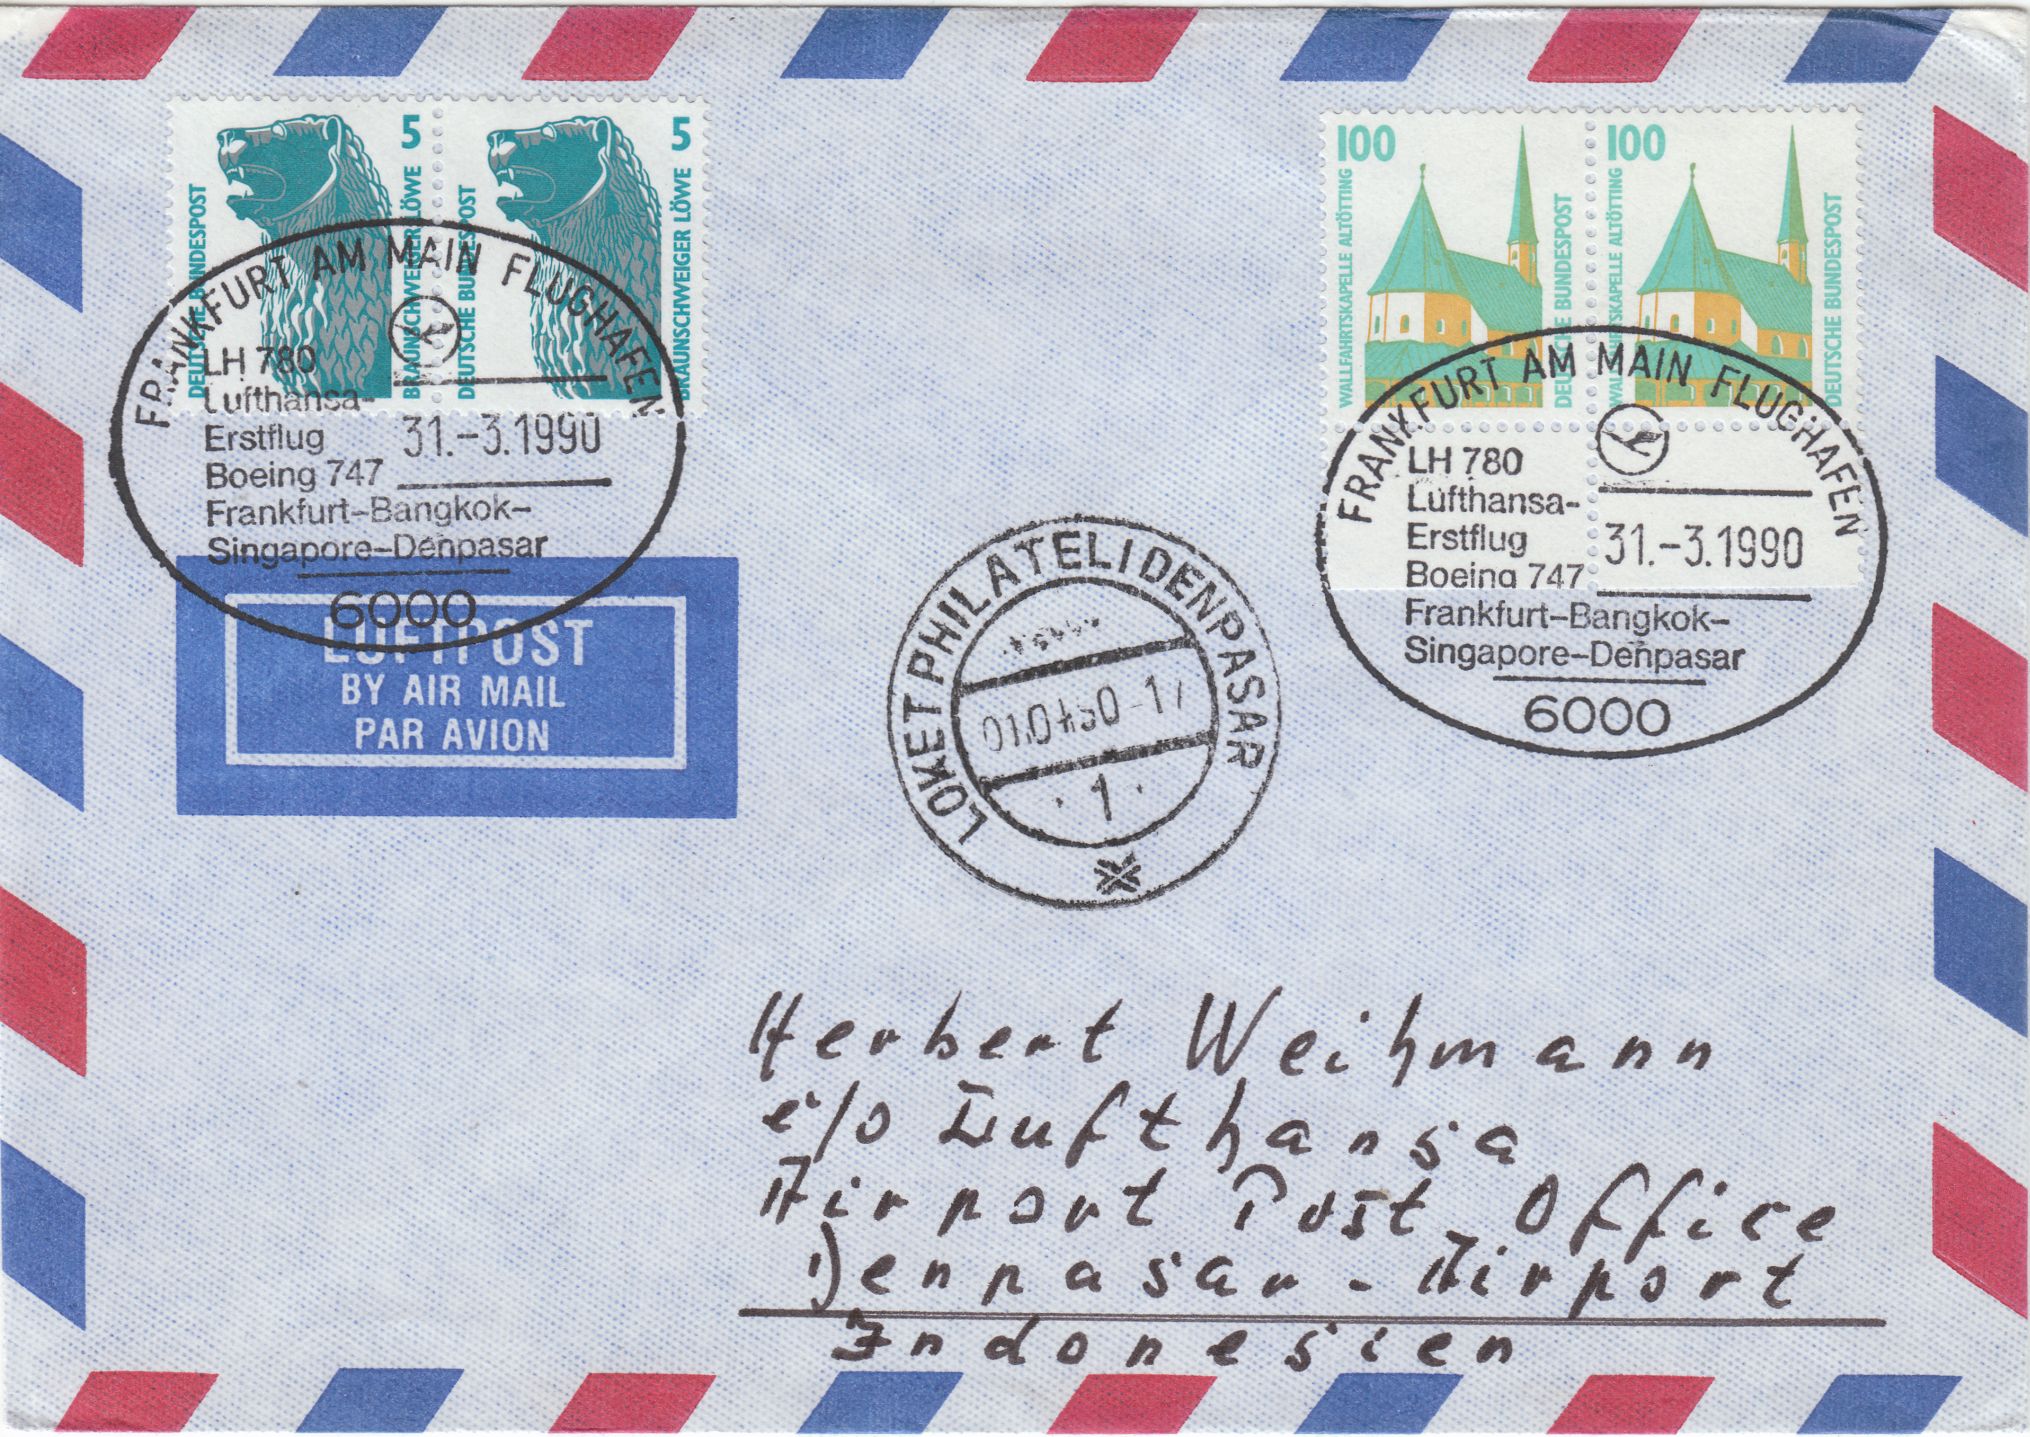 5
DEUTSCHE BUNDESPOST
BRAUNSCHWEIGER LÖWE
5
DEUTSCHE BUNDESPOST
BRAUNSCHWEIGER LÖWE
100
WALLFAHRTSKAPELLE ALTÖTTING
DEUTSCHE BUNDESPOST
100
WALLFAHRTSKAPELLE ALTÖTTING
DEUTSCHE BUNDESPOST
FRANKFURT AM MAIN FLUGHAFEN
LH 780
Lufthansa-
Erstflug
Boeing 747
31.-3.1990
Frankfurt–Bangkok–
Singapore–Denpasar
6000
FRANKFURT AM MAIN FLUGHAFEN
LH 780
Lufthansa-
Erstflug
Boeing 747
31.-3.1990
Frankfurt–Bangkok–
Singapore–Denpasar
6000
LUFTPOST
BY AIR MAIL
PAR AVION
LOKET PHILATELI DENPASAR
01.04.90-17
1
Herbert Weihmann
c/o Lufthansa
Airport Post Office
Denpasar - Airport
Indonesien